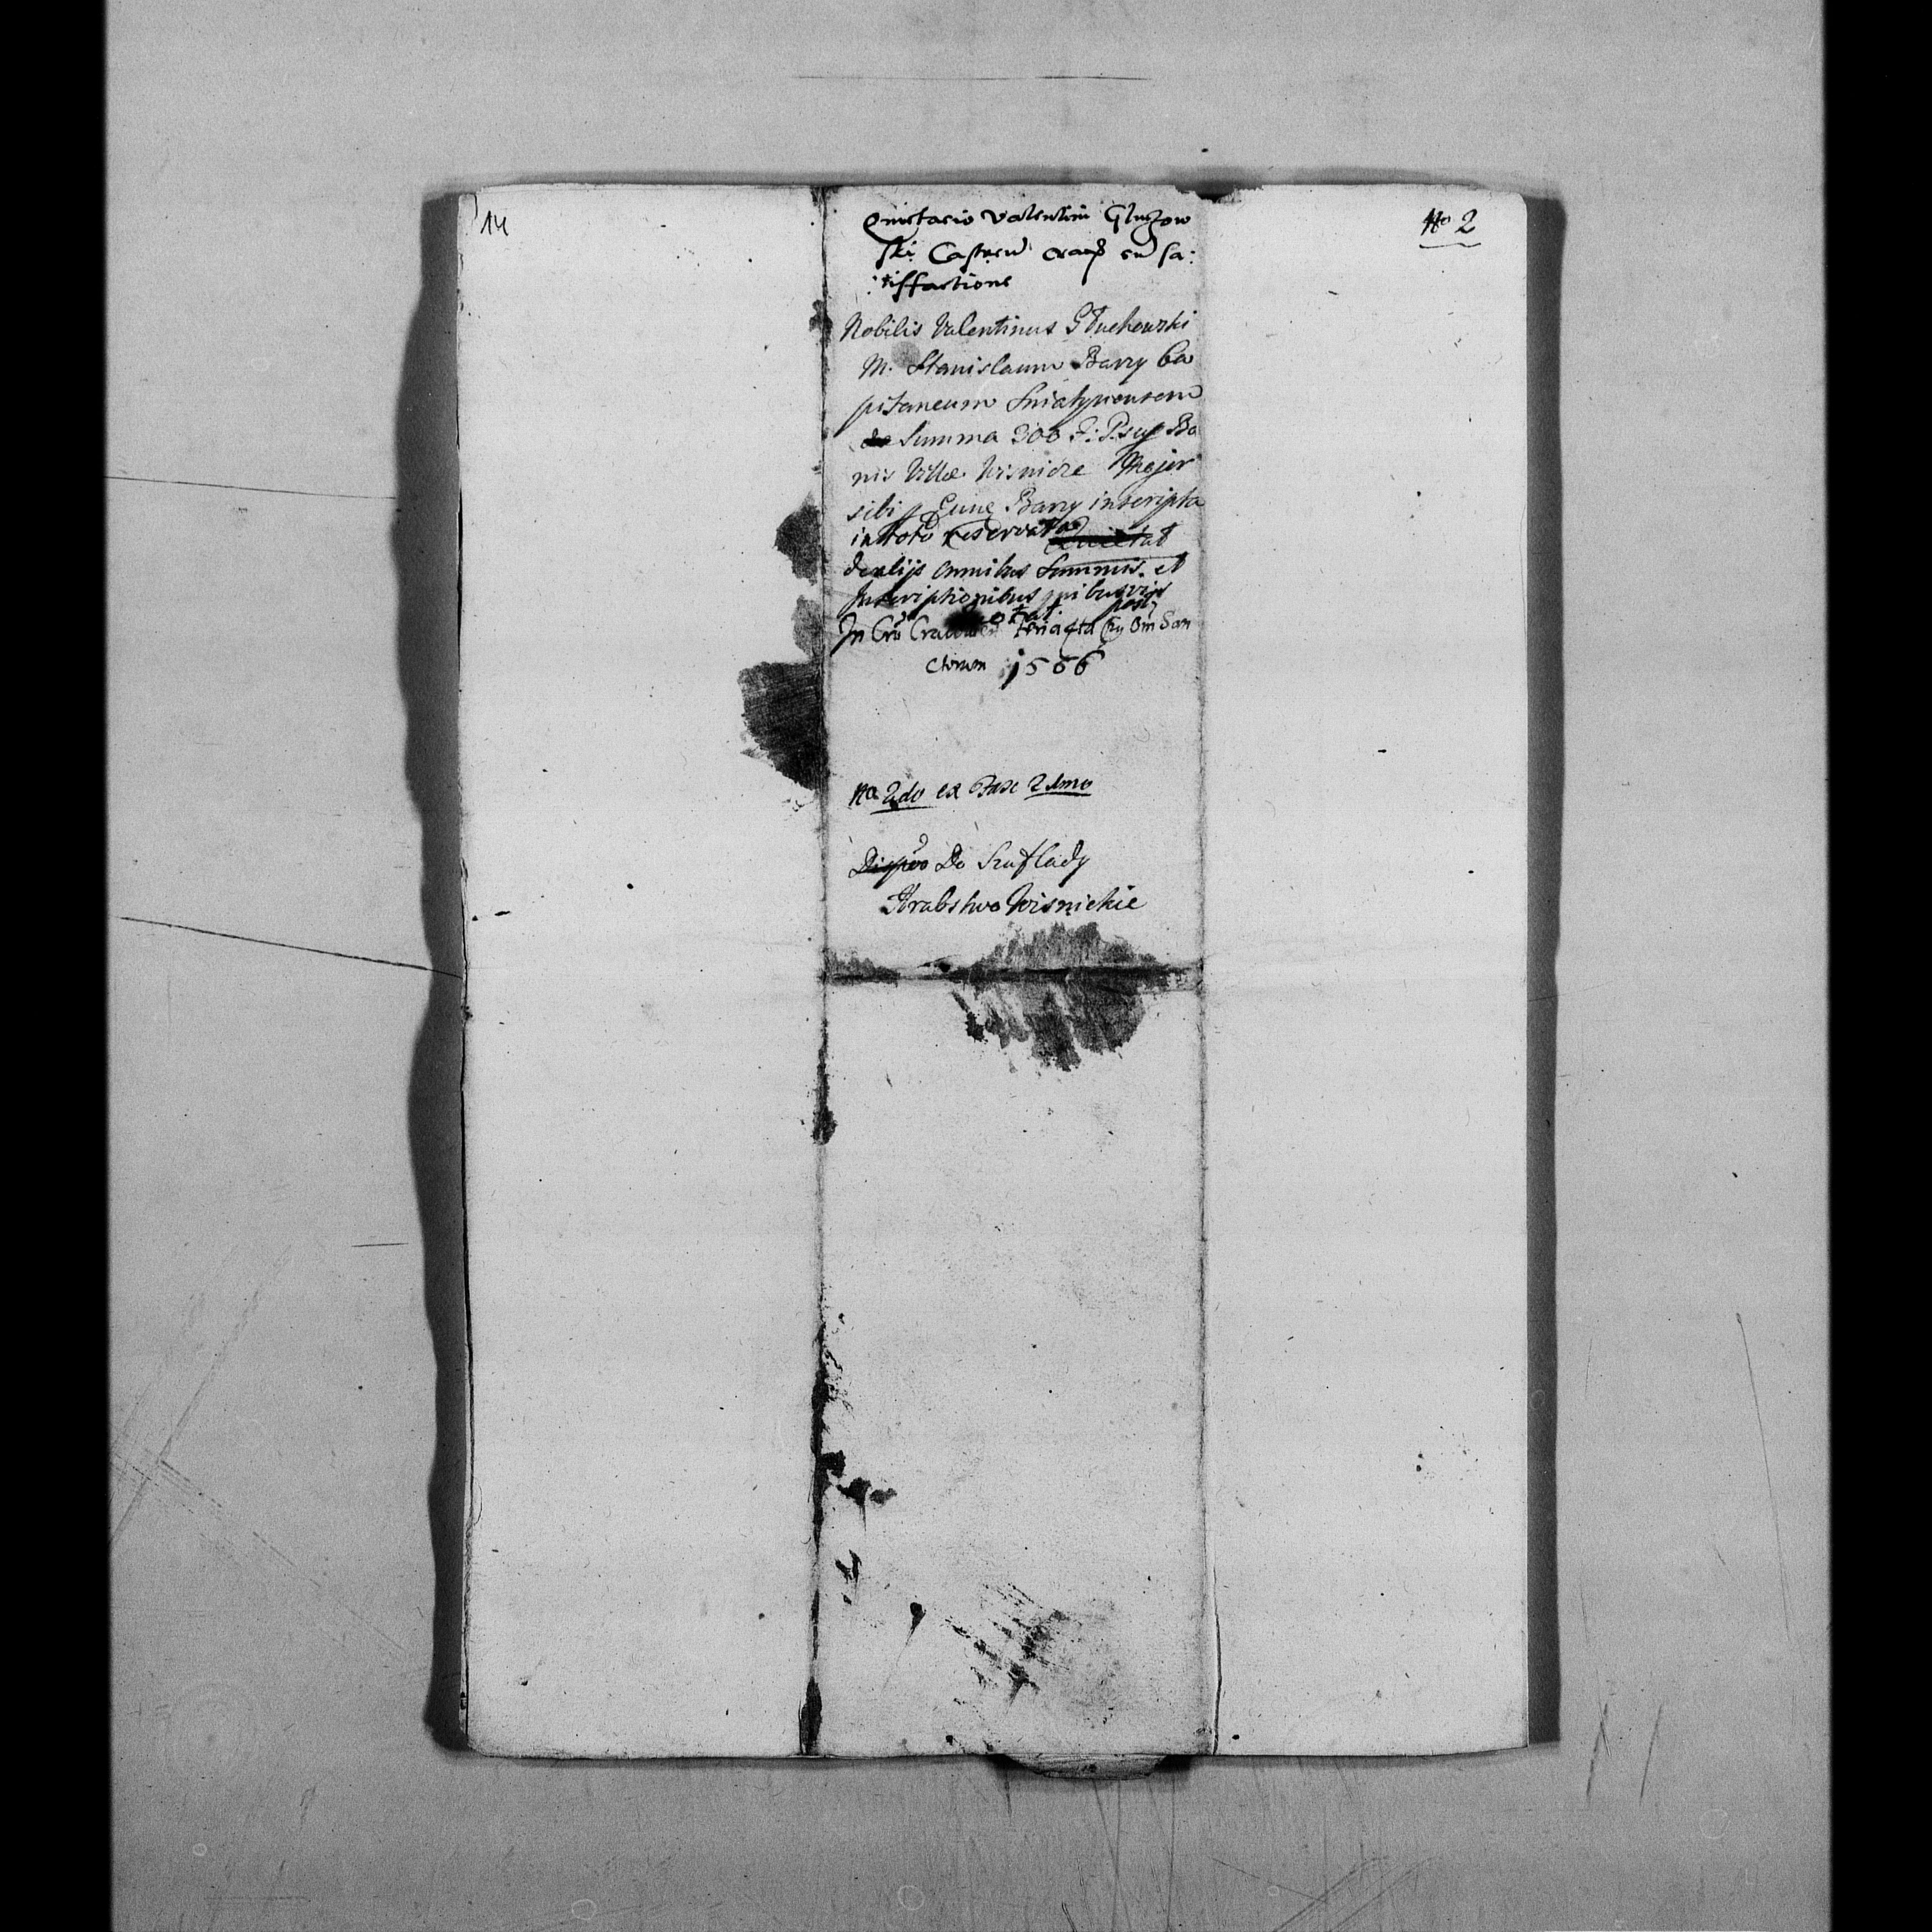 14
No 2
Quietacio Valentini Gluchow
ski Castren crac cu sa:
:tisffactione
Nobilis Valentinus Głuchowski
M. Stanislaum Barzy Ca
pitaneum Sniatynensem
de Summa 300 F: P. sup Bo
nis Villæ Wisnicze Major
sibi p Eund Barzy inscripta
in toto reservatas Quietat
de alijs omnibus Summis et
Inscriptionibus quibusvis
In Cro feria 4ta post Om San
ctorum 1566
No 2do ex Fasc 2dmo
Do Szuflady
Hrabstwo Wisnickie